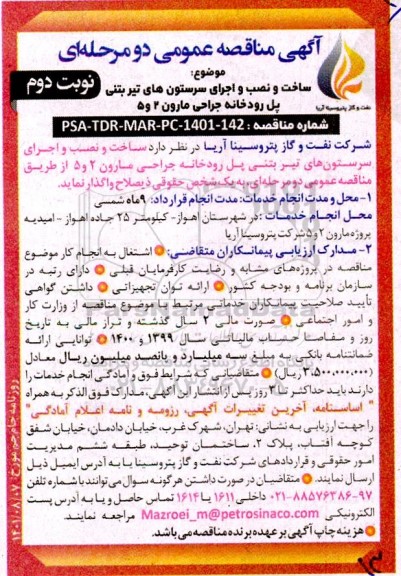 آگهی مناقصه عمومی دو مرحله‌ای
موضوع:
ساخت و نصب و اجرای سرستون های تیر بتنی
پل رودخانه جراحی مارون ۲ و ۵
نوبت دوم
نفت و گاز پتروسینا آریا
شماره مناقصه : PSA-TDR-MAR-PC-1401-142
شرکت نفت و گاز پتروسینا آریا در نظر دارد ساخت و نصب و اجرای
سرستون‌های تیر بتنی پل رودخانه جراحی مارون ۲ و ۵ از طریق
مناقصه عمومی دو مرحله‌ای به یک شخص حقوقی ذیصلاح واگذار نماید.
۱- محل و مدت انجام خدمات: مدت انجام قرارداد: ۹ ماه شمسی
محل انجام خدمات : در شهرستان اهواز- کیلومتر ۲۵ جاده اهواز - امیدیه
پروژه مارون ۲ و ۵ شرکت پتروسینا آریا
۲- مدارک ارزیابی پیمانکاران متقاضی: اشتغال به انجام کار موضوع
مناقصه در پروژه‌های مشابه و رضایت کارفرمایان قبلی دارای رتبه در
سازمان برنامه و بودجه کشور ارائه توان تجهیزاتی داشتن گواهی
تأیید صلاحیت پیمانکاران خدماتی مرتبط با موضوع مناقصه از وزارت کار
و امور اجتماعی صورت مالی ۲ سال گذشته و تراز مالی به تاریخ
روز و مفاصا حساب مالیاتی سال ۱۳۹۹ و ۱۴۰۰ توانایی ارائه
ضمانتنامه بانکی به مبلغ سه میلیارد و پانصد میلیون ریال معادل
(۳.۵۰۰.۰۰۰.۰۰۰ ریال) متقاضیانی که شرایط فوق و آمادگی انجام خدمات را
دارند باید حداکثر تا روز پس از انتشار این آگهی، مدارک فوق الذکر به همراه
" اساسنامه، آخرین تغییرات آگهی، رزومه و نامه اعلام آمادگی"
را جهت ارزیابی به نشانی: تهران، شهرک غرب، خیابان دادمان، خیابان شفق
کوچه آفتاب، پلاک ۲، ساختمان توحید، طبقه ششم مدیریت
امور حقوقی و قراردادهای شرکت نفت و گاز پتروسینا یا به آدرس ایمیل ذیل
ارسال نمایند. متقاضیان در صورت داشتن هرگونه سوال می‌توانند با شماره تلفن
۰۲۱-۸۸۵۷۶۳۸۶-۹۷ داخلی ۱۶۱۱ یا ۱۶۱۴ تماس حاصل و یا به آدرس پست
الکترونیکی Mazroei_m@petrosinaco.com مراجعه نمایند.
هزینه چاپ آگهی بر عهده برنده مناقصه می‌باشد.
روزنامه جام جم مورخ: ۱۴۰۱/۰۸/۰۷